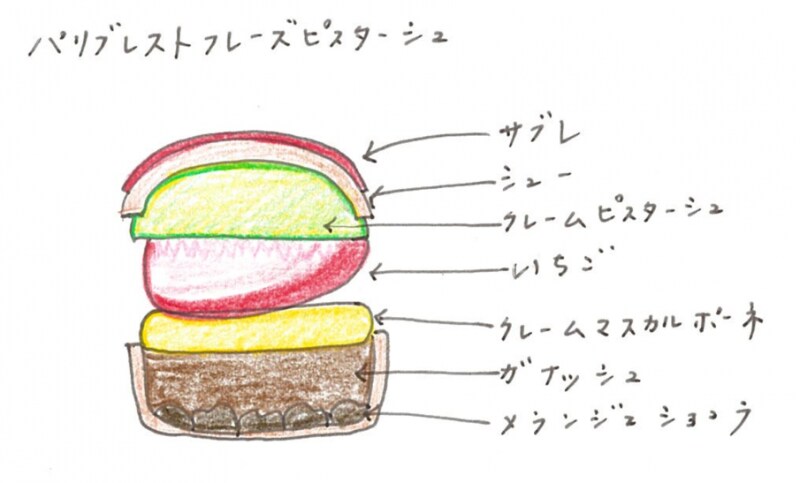 パリブレストフレーズピスターシュ
サブレ
シュー
クレームピスターシュ
いちご
クレームマスカルポーネ
ガナッシュ
メランジェショコラ